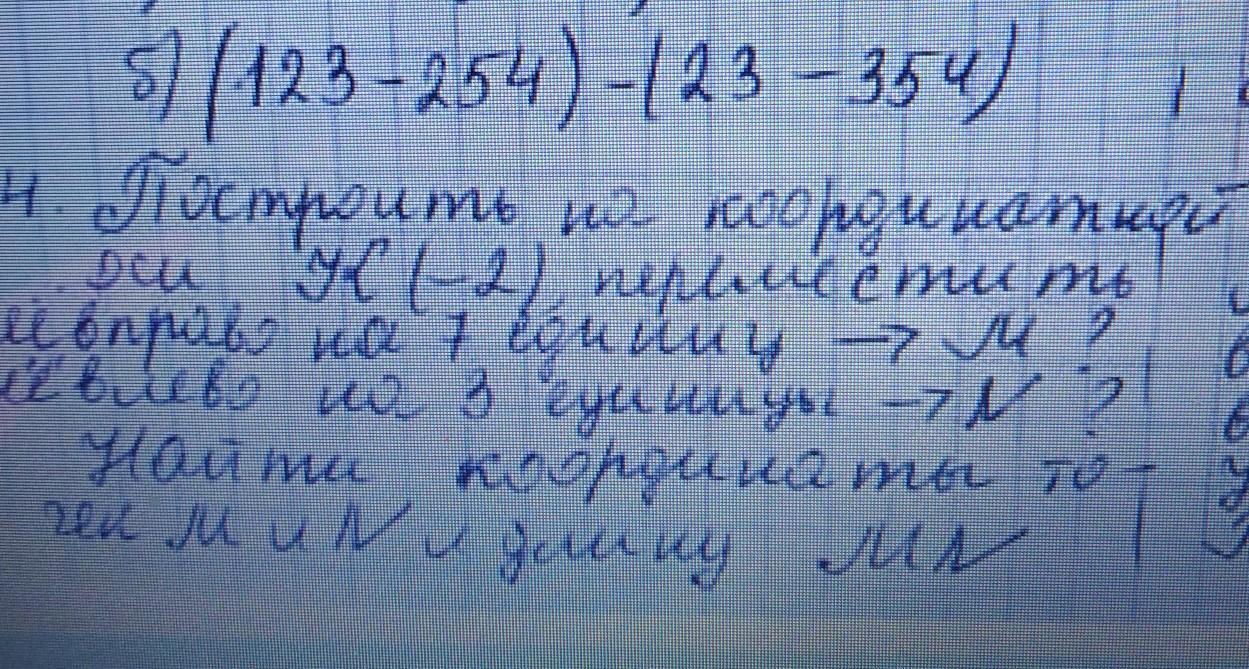 б) (123 - 254) - (23 - 354)
4. Построить на координатной
оси К (-2), переместить
её вправо на 7 единиц → М ?
её влево на 3 единицы → N ?
Найти координаты то-
чек М и N и длину MN